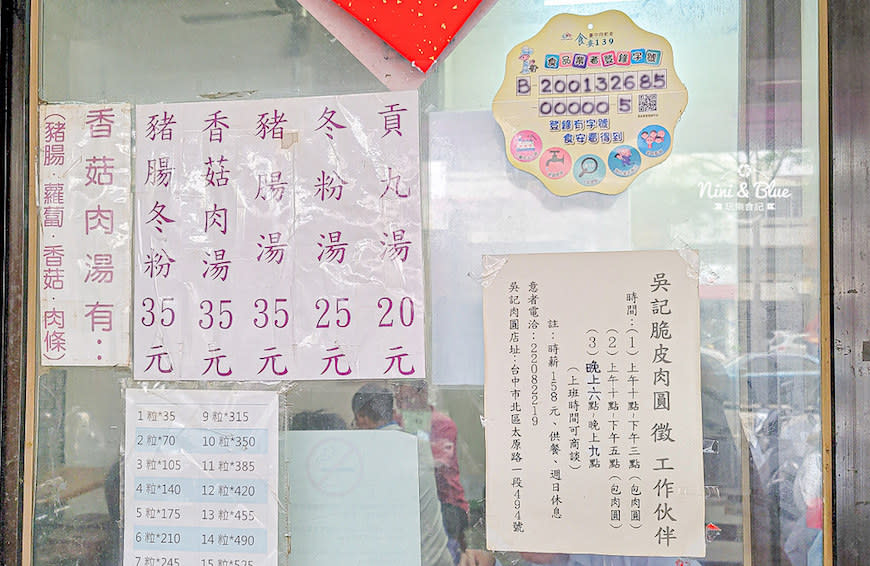 香菇肉湯有：
（豬腸．蘿蔔．香菇．肉條）
貢丸湯20元
冬粉湯25元
豬腸湯35元
香菇肉湯35元
豬腸冬粉35元
1粒*35
2粒*70
3粒*105
4粒*140
5粒*175
6粒*210
7粒*245
9粒*315
10粒*350
11粒*385
12粒*420
13粒*455
14粒*490
15粒*525
139
食品業者登錄字號
B 200132685
00000 5
登錄有字號
食安看得到
Nini & Blue
玩樂食記
吳記脆皮肉圓 徵 工作伙伴
時間：（1）上午十點~下午三點（包肉圓）
（2）上午十點~下午五點（包肉圓）
（3）晚上六點~晚上九點
（上班時間可商談）
註：時薪158元、供餐、週日休息
意者電洽：22082219
吳記肉圓店址：台中市北區太原路一段494號